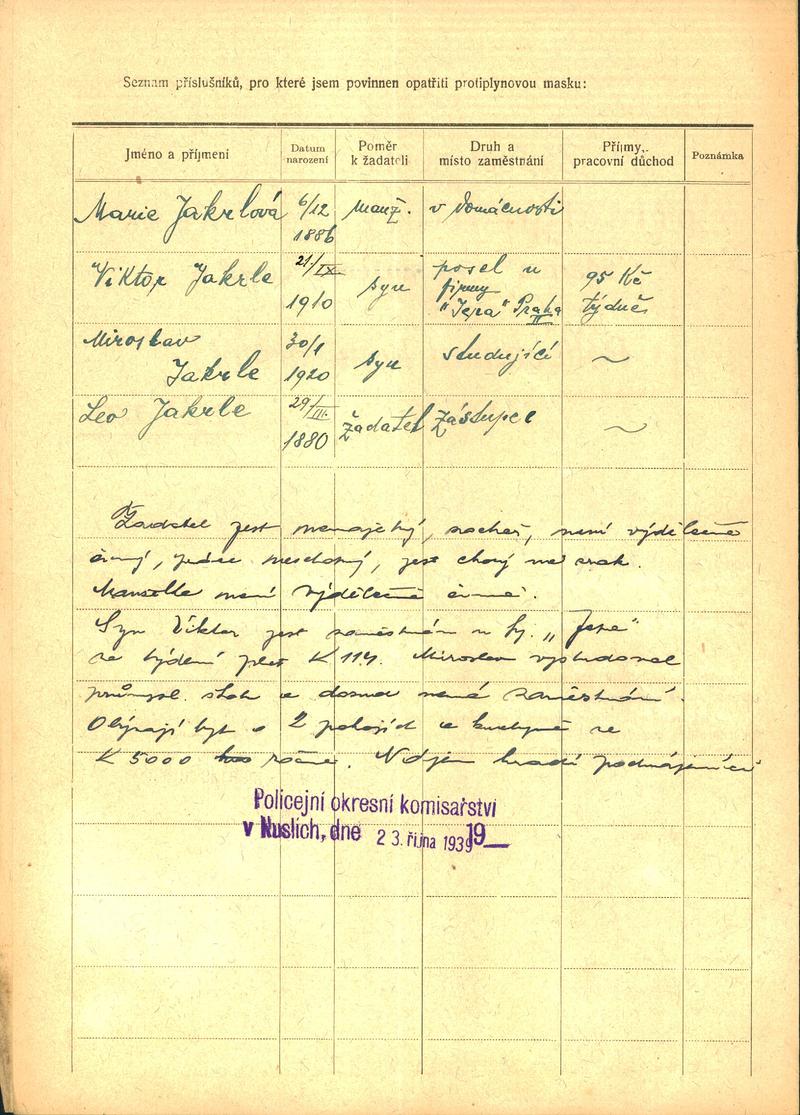 Seznam příslušníků, pro které jsem povinnen opatřiti protiplynovou masku:
Jméno a příjmení
Datum narození
Poměr k žadateli
Druh a místo zaměstnání
Příjmy, pracovní důchod
Poznámka
Marie Jakrlová 6/12 manž. v domácnosti
1886
Viktor Jakrle 21/IX syn posel u firmy 95 Kč
1910 "Jepa" Praha II týdně
Miroslav 30/1 syn studující
Jakrle 1920
Leo Jakrle 29/III. žadatel zástupce
1880
Žadatel jest nemajetný, není výdělečně
činný, práce neschopný, jest chorý na zrak.
Manželka není výdělečně činná.
Syn Viktor jest zaměstnán u fy. „Jepa"
za týdení plat K 114. Miroslav vystudoval
průmysl. a dosud nemá zaměstnání.
Obývají byt o 2 pokojích a kuchyně za
K 5000 ročně. Nájem hradí podnájemníci
Policejní okresní komisařství
v Nuslích, dne 23. října 1939 19